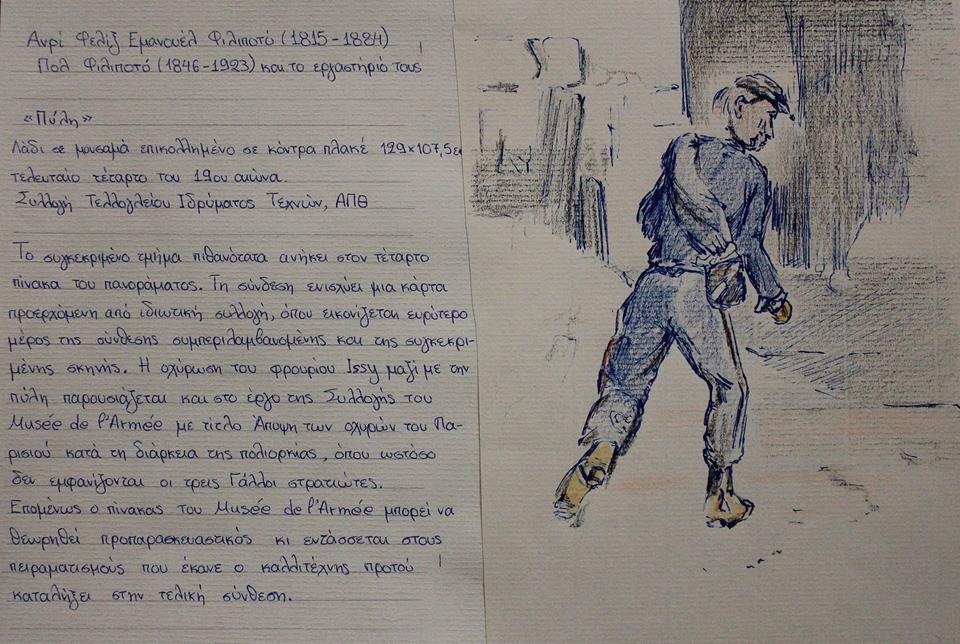 Ανρί Φελίξ Εμανουέλ Φιλιποτό (1815-1884)
Πολ Φιλιποτό (1846-1923) και το εργαστήριό τους
«Πύλη»
Λάδι σε μουσαμά επικολλημένο σε κόντρα πλακέ 129×107,5εκ
τελευταίο τέταρτο του 19ου αιώνα.
Συλλογή Τελλογλείου Ιδρύματος Τεχνών, ΑΠΘ
Το συγκεκριμένο τμήμα πιθανότατα ανήκει στον τέταρτο
πίνακα του πανοράματος. Τη σύνδεση ενισχύει μια κάρτα
προερχόμενη από ιδιωτική συλλογή, όπου εικονίζεται ευρύτερο
μέρος της σύνθεσης συμπεριλαμβανομένης και της συγκεκρι-
μένης σκηνής. Η οχύρωση του φρουρίου Issy μαζί με την
πύλη παρουσιάζεται και στο έργο της Συλλογής του
Musée de l'Armée με τίτλο Άποψη των οχυρών του Πα-
ρισιού κατά τη διάρκεια της πολιορκίας, όπου ωστόσο
δεν εμφανίζονται οι τρεις Γάλλοι στρατιώτες.
Επομένως ο πίνακας του Musée de l'Armée μπορεί να
θεωρηθεί προπαρασκευαστικός κι εντάσσεται στους
πειραματισμούς που έκανε ο καλλιτέχνης προτού
καταλήξει στην τελική σύνθεση.